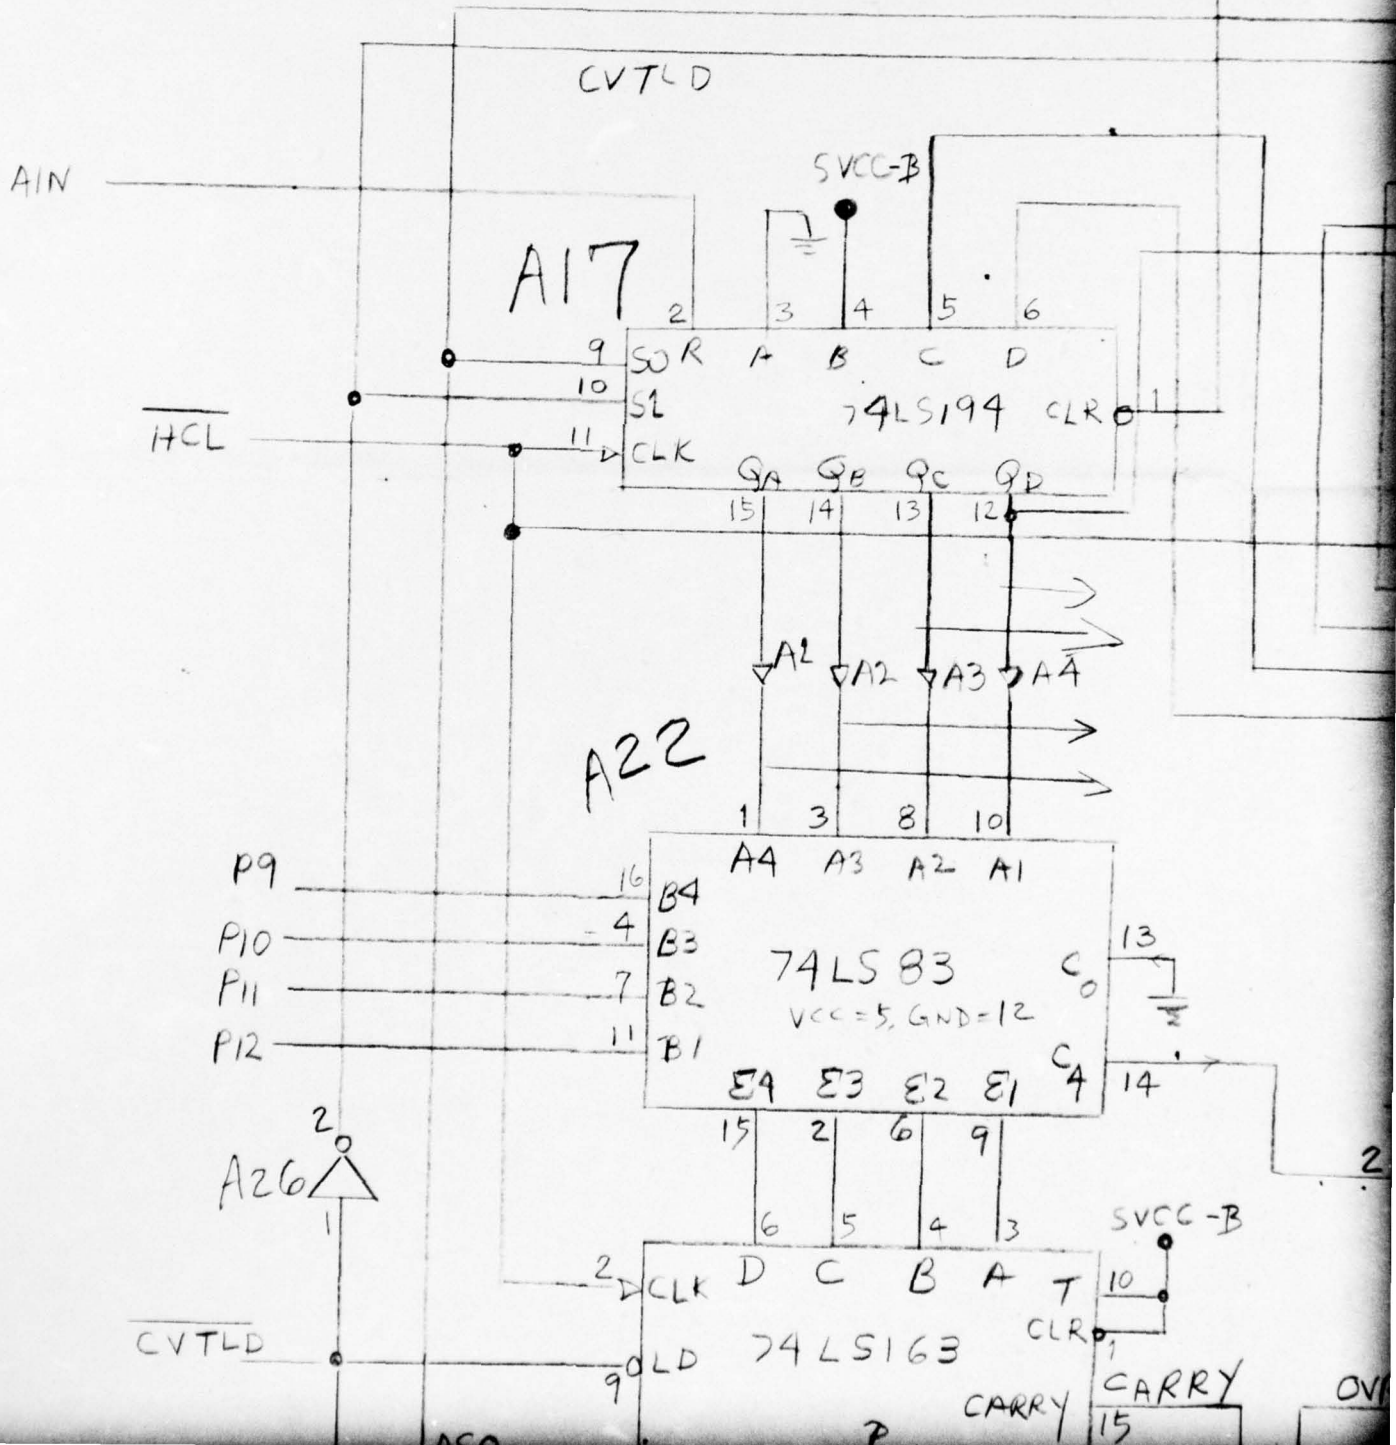 CVTLD
5VCC-B
AIN
A17
2 3 4 5 6
9 S0 R A B C D
10 S1 74LS194 CLR 1
HCL 11 CLK
QA QB QC QD
15 14 13 12
A1 A2 A3 A4
A22
1 3 8 10
A4 A3 A2 A1
P9 16 B4
P10 4 B3 13
P11 7 B2 74LS83 C0
VCC=5, GND=12
P12 11 B1 C4 14
Σ4 Σ3 Σ2 Σ1
15 2 6 9
2
A26
1
2
5VCC-B
6 5 4 3
2 CLK D C B A T 10
CLR 1
CVTLD 9 LD 74LS163
CARRY CARRY
15
P